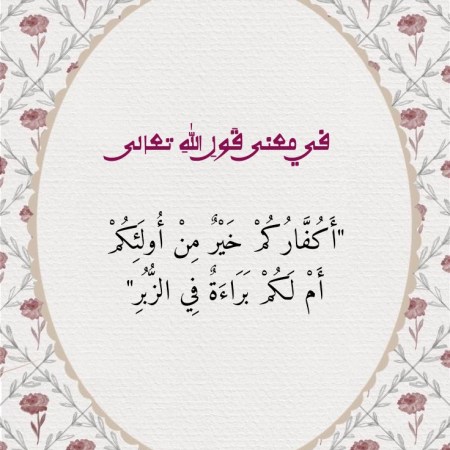 في معنى قول الله تعالى
"أَكُفَّارُكُمْ خَيْرٌ مِنْ أُولَئِكُمْ
أَمْ لَكُمْ بَرَاءَةٌ فِي الزُّبُرِ"